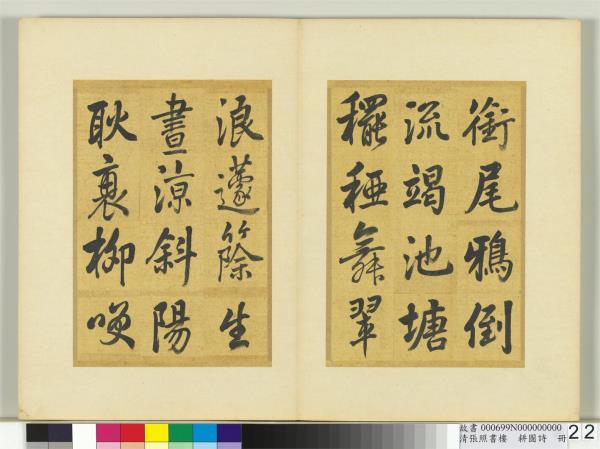 銜尾鴉倒
流竭池塘
穲稏舞翠
浪蘧篨生
晝涼斜陽
耿衰柳咲
故書 000699N000000000
清張照書樓 耕圖詩 冊
22